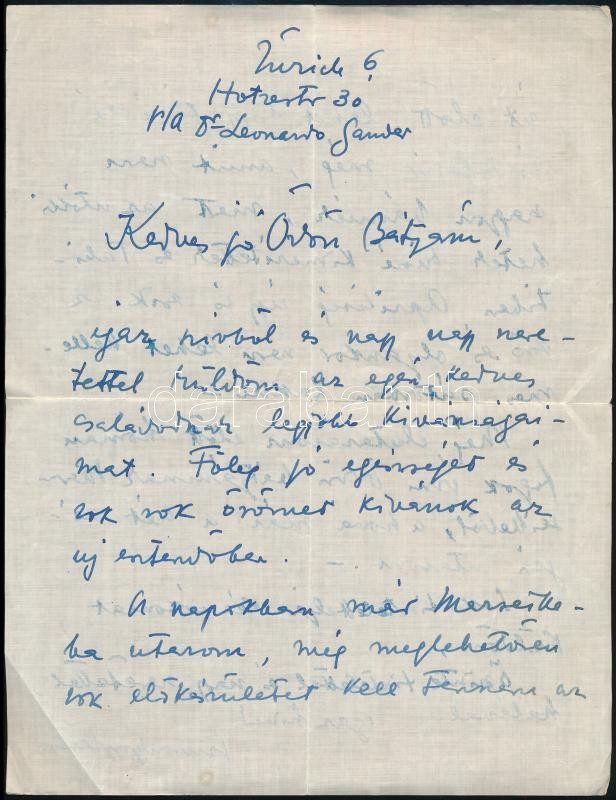 Zürich 6
Hotzestr 30
p/a Dr Leonardo, Sandor
Kedves jó Ödön Bátyám,
igaz szivböl és nagy nagy szere-
tettel küldöm az egész kedves
családodnak legjobb kivánságai-
mat. Föleg jó egésséget és
sok sok örömet kivánok az
uj esztendöben.
A napokban már Marseille-
ba utazom, még meglehetösen
sok elökészületet kell tennem az
darabanth